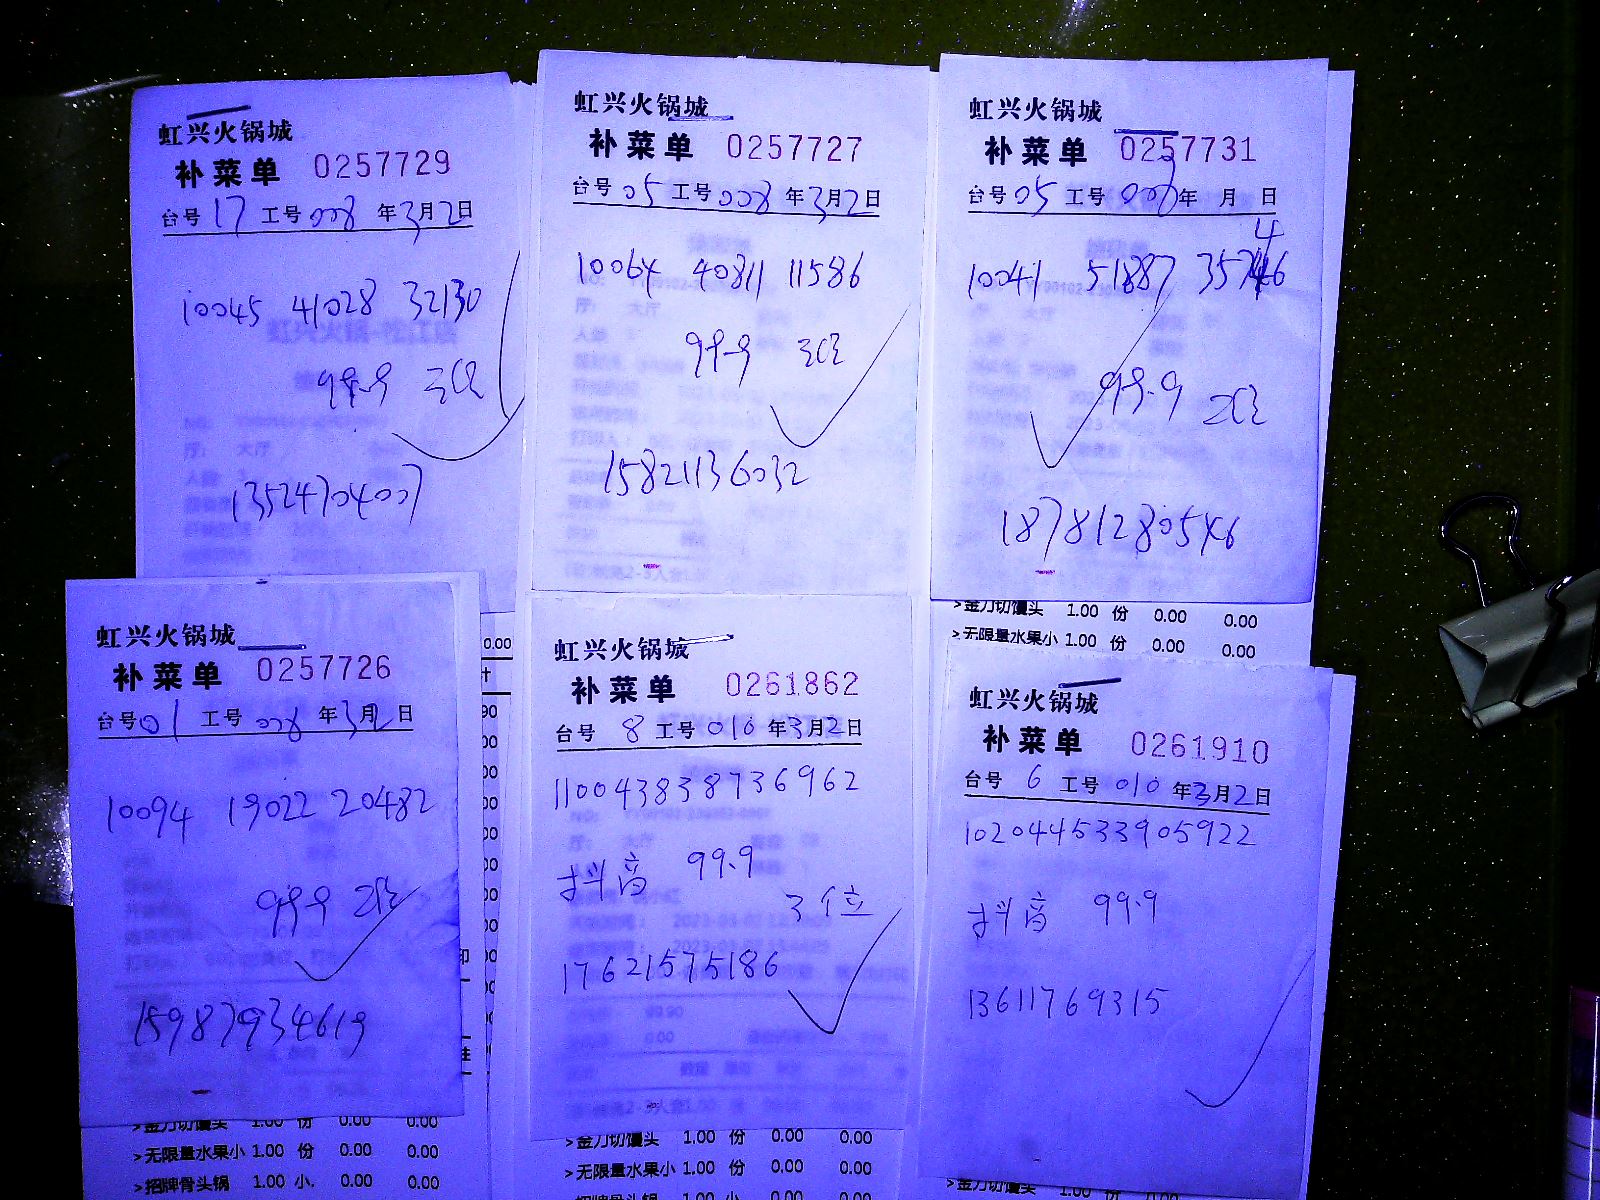 虹兴火锅城
补菜单 0257729
台号 17 工号 008 年 3月2日
10045 41028 32130
99.9 3位
13524704007
虹兴火锅城
补菜单 0257727
台号 05 工号 008 年 3月2日
10064 40811 11586
99.9 3位
15821136032
虹兴火锅城
补菜单 0257731
台号 05 工号 008 年 月 日
4
10041 51887 35746
99.9 2位
18781280546
>金刀切馒头 1.00 份 0.00 0.00
>无限量水果小 1.00 份 0.00 0.00
虹兴火锅城
补菜单 0257726
台号 01 工号 008 年 3月2日
10094 19022 20482
99.9 2位
15987934619
>金刀切馒头 1.00 份 0.00 0.00
>无限量水果小 1.00 份 0.00 0.00
>招牌骨头锅 1.00 小. 0.00 0.00
虹兴火锅城
补菜单 0261862
台号 8 工号 010 年3月2日
110043838736962
抖音 99.9
3位
17621575186
>金刀切馒头 1.00 份 0.00 0.00
>无限量水果小 1.00 份 0.00 0.00
虹兴火锅城
补菜单 0261910
台号 6 工号 010 年3月2日
102044533905922
抖音 99.9
13611769315
>金刀切馒头 1.00 份 0.00 0.00